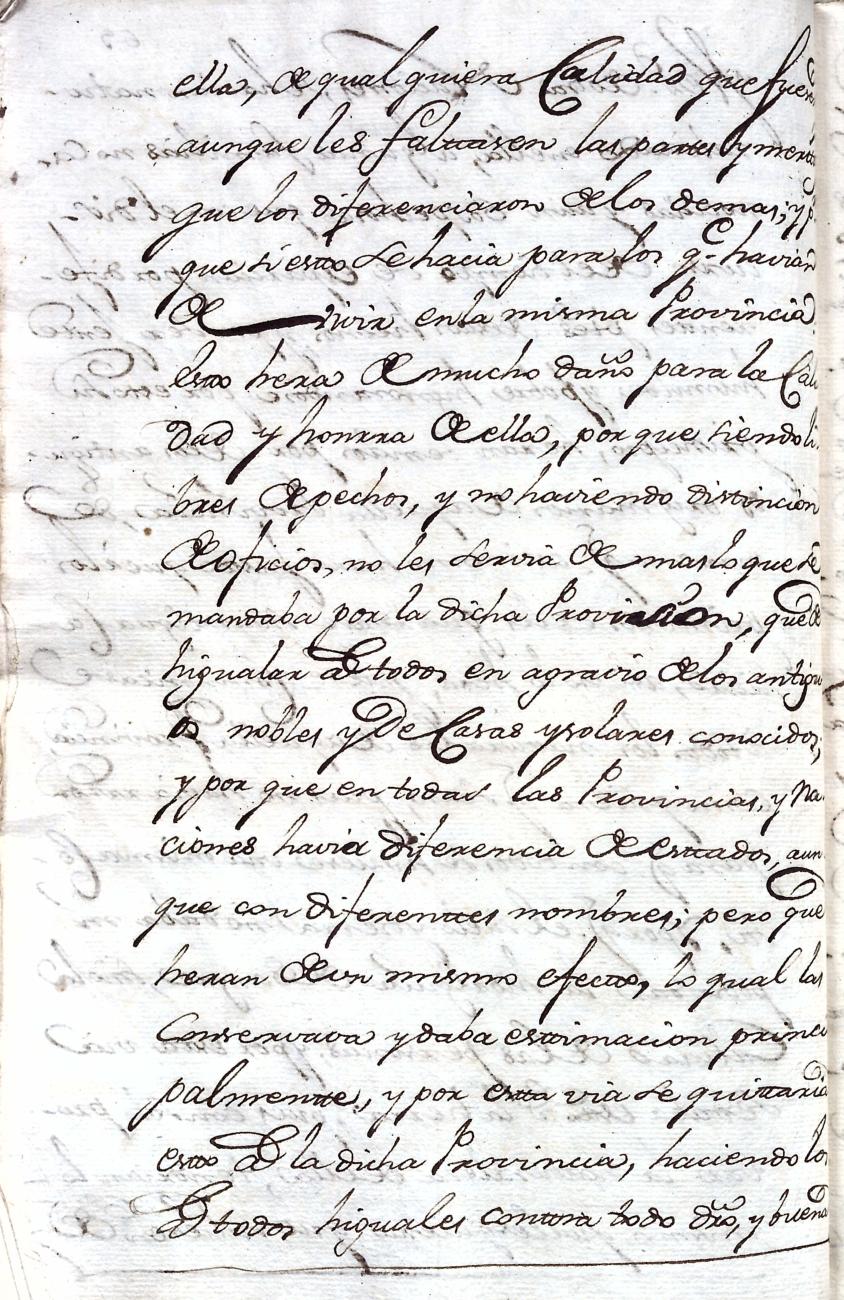 ella, de qual quiera Calidad que fuere
aunque les falttasen las partes y merit
que los diferenciaron de los demas; y p.r
que si estto se hacia para los q.e havian
de vivir en la misma Provincia
estto hera de mucho daño para la Cali
dad y honrra de ella, por que siendo li
bres de pechos, y no haviendo distincion
de oficios, no les servia de mas lo que se
mandaba por la dicha Provission, que de
higualar a todos en agravio de los antigu
os nobles y De Casas y solares conocidos,
y por que en todas las Provincias, y Na
ciones havia diferencia de esttados, aun
que con diferenttes nombres; pero que
heran de un mismo efectto, lo qual las
Conservava y daba esttimacion princi
palmentte, y por estta via se quittaria
estto a la dicha Provincia, haciendo los
a todos higuales conttra todo dro, y buena